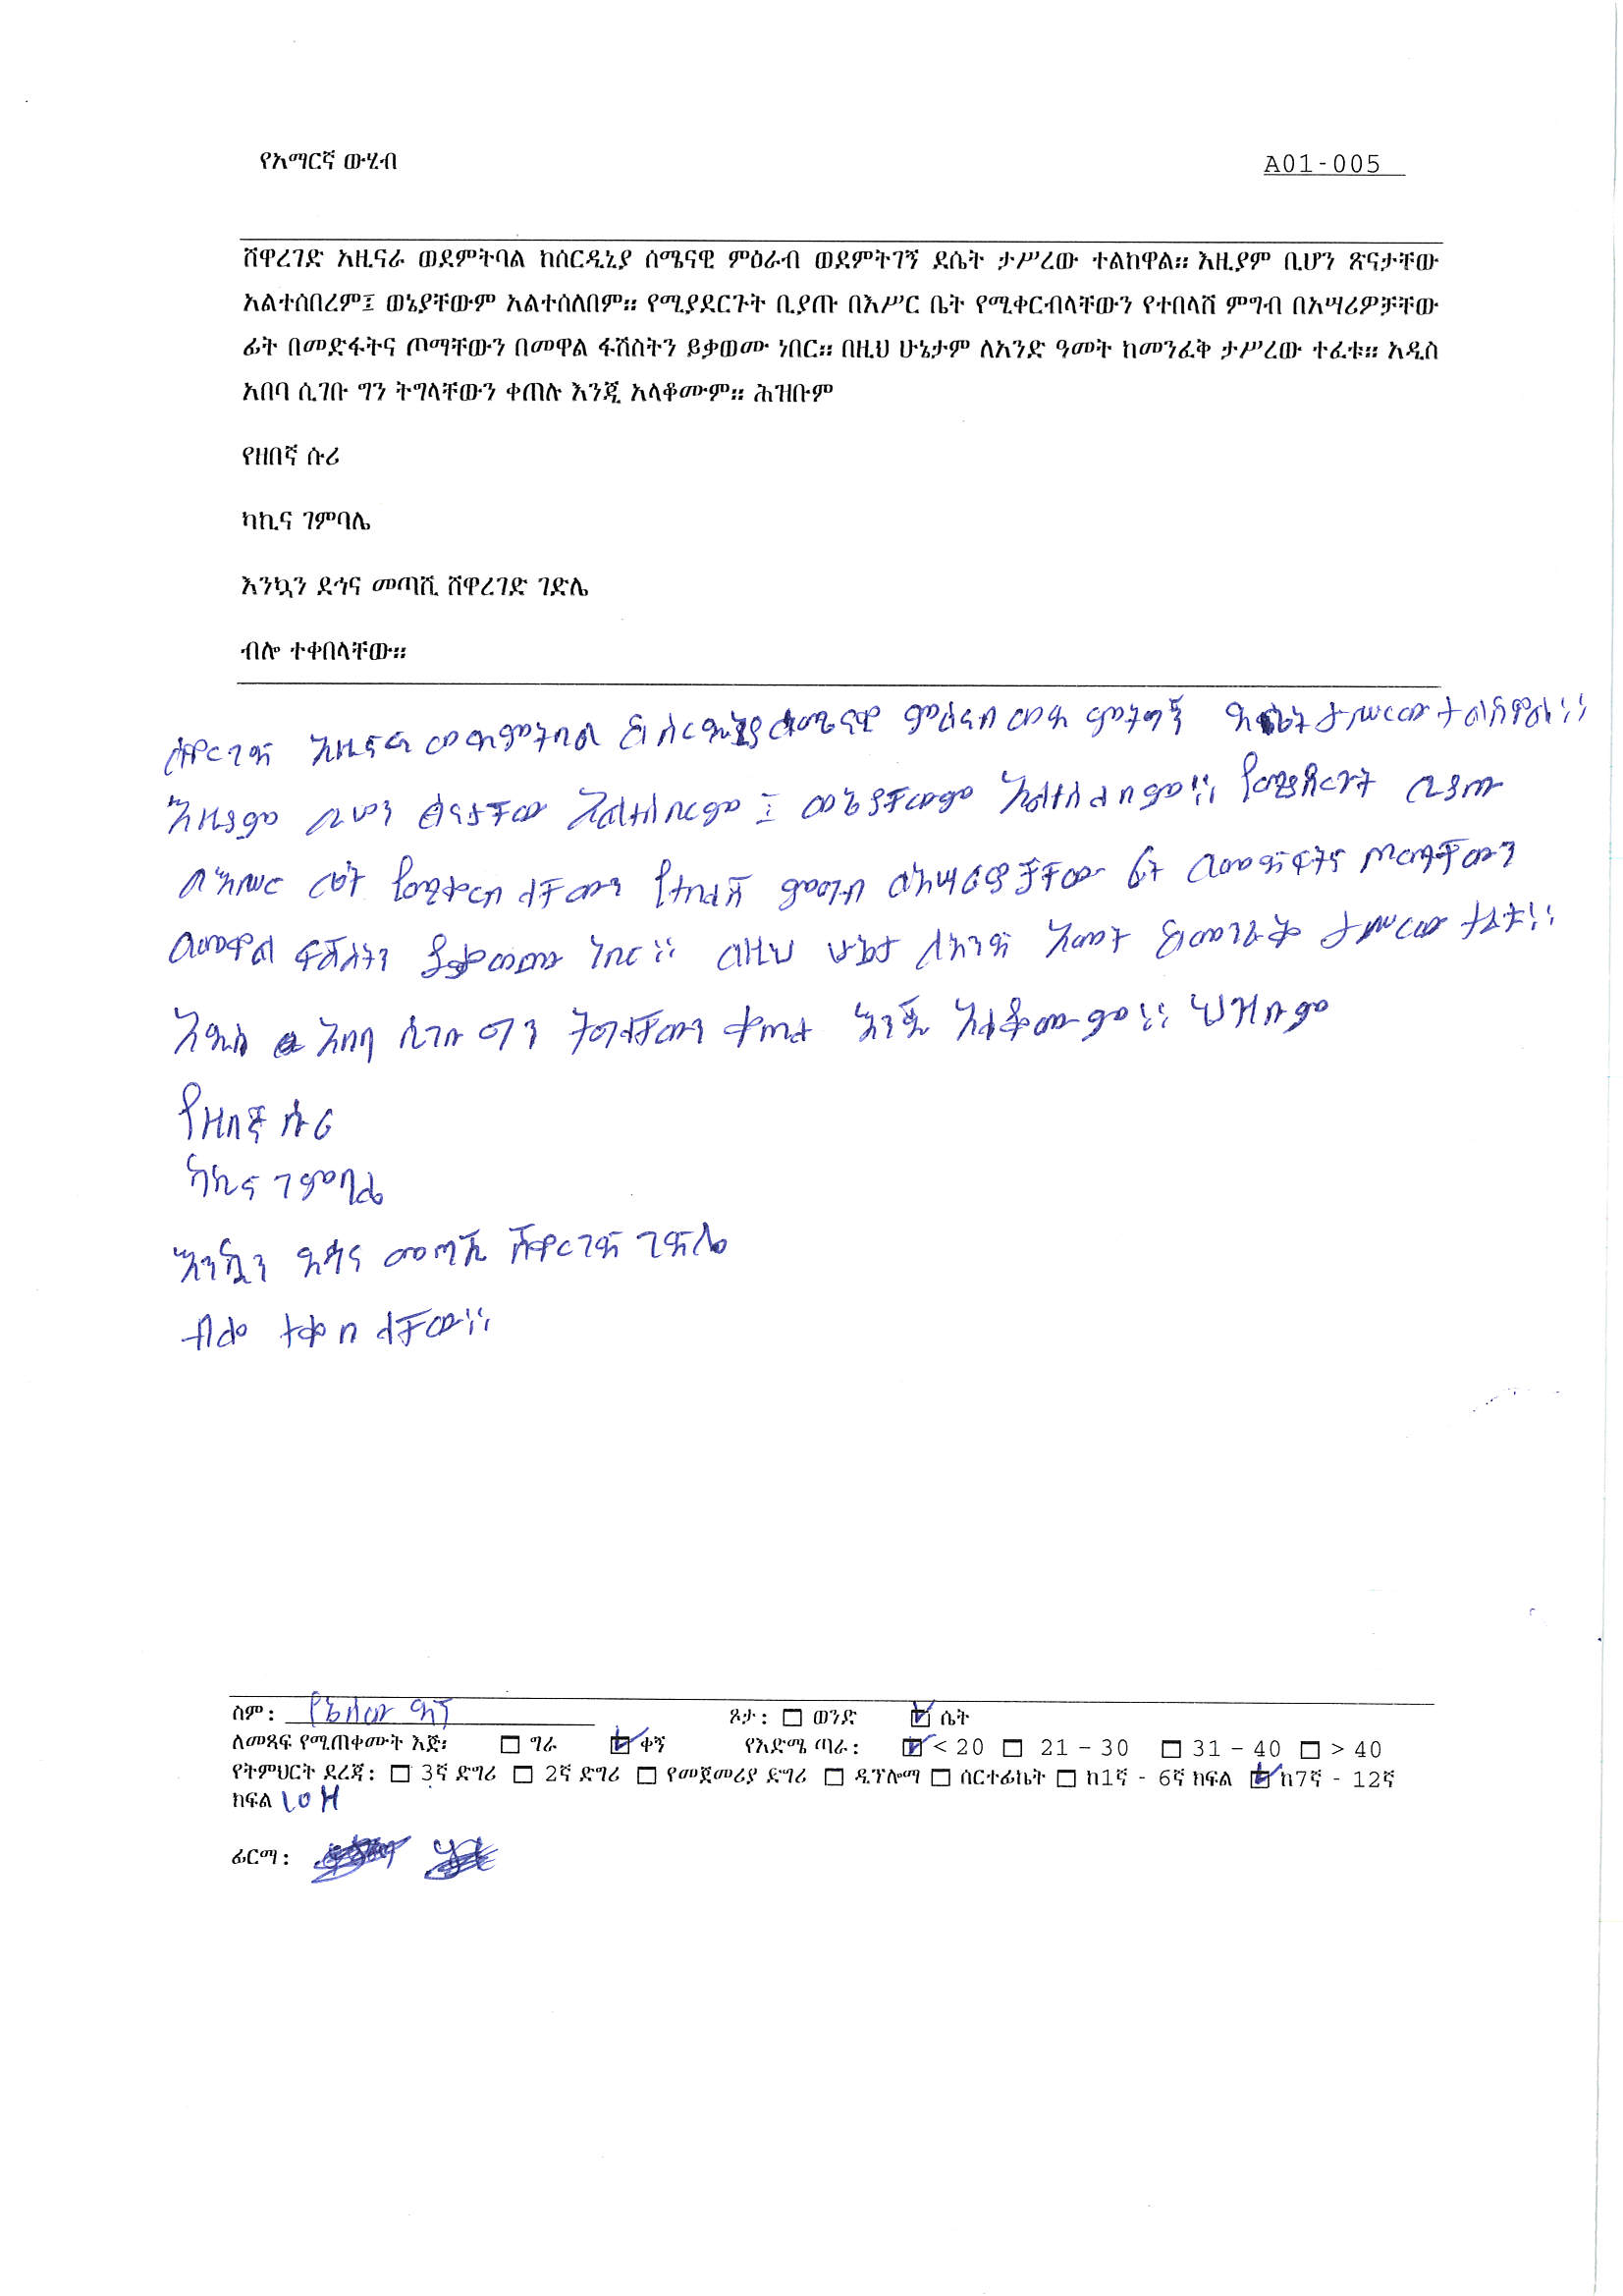 የአማርኛ ውሂብ A01-005
ሸዋረገድ አዚናራ ወደምትባል ከሰርዲኒያ ሰሜናዊ ምዕራብ ወደምትገኝ ደሴት ታሥረው ተልከዋል፡፡ እዚያም ቢሆን ጽናታቸው
አልተሰበረም፤ ወኔያቸውም አልተሰለበም፡፡ የሚያደርጉት ቢያጡ በእሥር ቤት የሚቀርብላቸውን የተበላሸ ምግብ በአሣሪዎቻቸው
ፊት በመድፋትና ጦማቸውን በመዋል ፋሽስትን ይቃወሙ ነበር፡፡ በዚህ ሁኔታም ለአንድ ዓመት ከመንፈቅ ታሥረው ተፈቱ፡፡ አዲስ
አበባ ሲገቡ ግን ትግላቸውን ቀጠሉ እንጂ አላቆሙም፡፡ ሕዝቡም
የዘበኛ ሱሪ
ካኪና ገምባሌ
እንኳን ደኅና መጣሺ ሸዋረገድ ገድሌ
ብሎ ተቀበላቸው፡፡
ሸዋርገድ አዚናራ ወደምትባል ከሰርዲኒያ ሰሜናዊ ምዕራብ ወደ ምትግኝ ደሴት ታሥረው ተልከዋል፡፡
እዚያም ቢሆን ፅናታቸው አልተሰበረም ፤ ወኔያቸውም አልተሰለበም፡፡ የሚያደርጉት ቢያጡ
በእሥር ቤት የሚቀርብላቸውን የተበላሸ ምግብ በአሣሪዎቻቸው ፊት በመድፋትና ጦማቸውን
በመዋል ፋሽስትን ይቃወሙ ነበር፡፡ በዚህ ሁኔታ ለአንድ አመት ከመንፈቅ ታሥረው ተፈቱ፡፡
አዲስ አበባ ሲገቡ ግን ትግላቸውን ቀጠሉ እንጂ አላቆሙም፡፡ ህዝቡም
የዘበኛ ሱሪ
ካኪና ገምባሌ
እንኳን ደኅና መጣሺ ሸዋርገድ ገድሌ
ብሎ ተቀበላቸው፡፡
ስም: የኔሰው ዳኛ ጾታ: ወንድ ሴት
ለመጻፍ የሚጠቀሙት እጅ፡ ግራ ቀኝ የእድሜ ጣራ: < 20 21 – 30 31 – 40 > 40
የትምህርት ደረጃ: 3ኛ ድግሪ 2ኛ ድግሪ የመጀመሪያ ድግሪ ዲፕሎማ ሰርተፊኬት ከ1ኛ - 6ኛ ክፍል ከ7ኛ - 12ኛ
ክፍል 10H
ፊርማ: